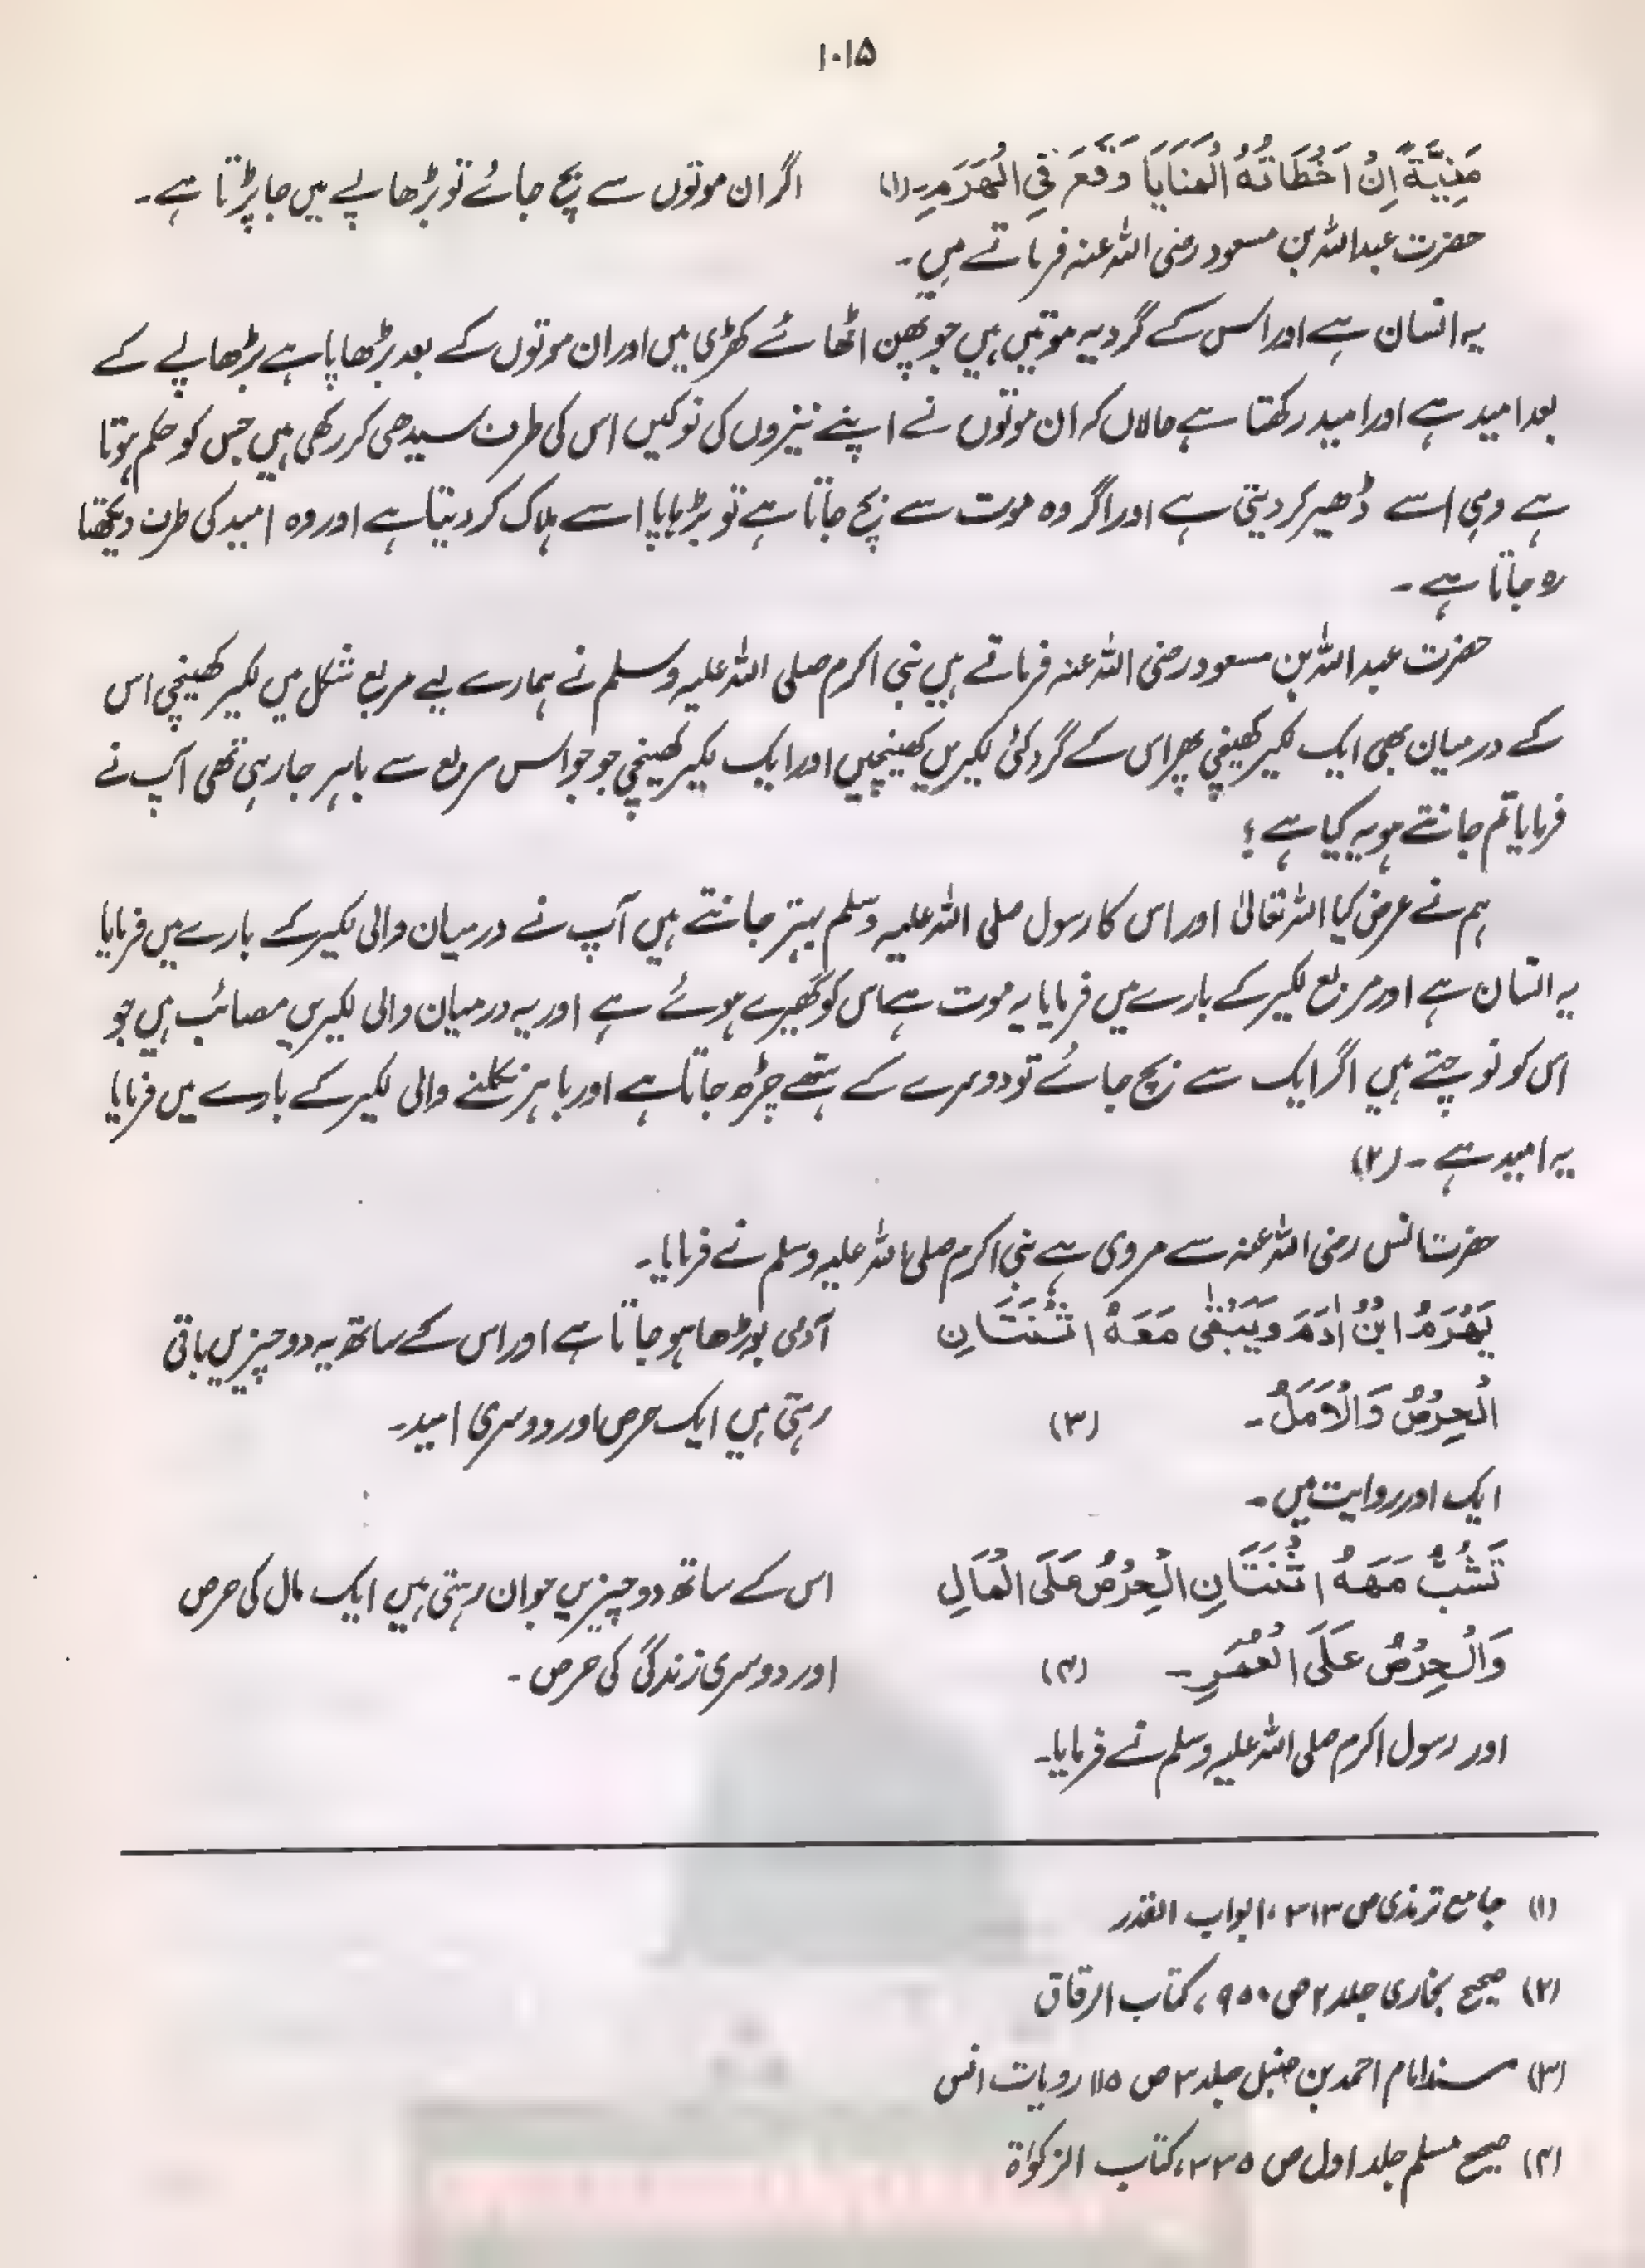 ۱۰۱۵
مَنِيَّةً اِنْ اَخْطَاَتْهُ الْمَنَايَا وَقَعَ فِي الْهَرَمِ۔(۱) اگر ان موتوں سے بچ جائے تو بڑھاپے میں جا پڑتا ہے۔
حضرت عبداللہ بن مسعود رضی اللہ عنہ فرماتے ہیں۔
یہ انسان ہے اور اس کے گرد یہ موتیں ہیں جو پھن اٹھائے کھڑی ہیں اور ان موتوں کے بعد بڑھاپا ہے بڑھاپے کے
بعد امید ہے اور امید رکھتا ہے حالاں کہ ان موتوں نے اپنے نیزوں کی نوکیں اس کی طرف سیدھی کر رکھی ہیں جس کو حکم ہوتا
ہے وہی اسے ڈھیر کر دیتی ہے اور اگر وہ موت سے بچ جاتا ہے تو بڑہاپا اسے ہلاک کر دیتا ہے اور وہ امید کی طرف دیکھتا
رہ جاتا ہے۔
حضرت عبداللہ بن مسعود رضی اللہ عنہ فرماتے ہیں نبی اکرم صلی اللہ علیہ وسلم نے ہمارے لیے مربع شکل میں لکیر کھینچی اس
کے درمیان بھی ایک لکیر کھینچی پھر اس کے گرد کئی لکیریں کھینچیں اور ایک لکیر کھینچی جو جو اس مربع سے باہر جا رہی تھی آپ نے
فرمایا تم جانتے ہو یہ کیا ہے؟
ہم نے عرض کیا اللہ تعالیٰ اور اس کا رسول صلی اللہ علیہ وسلم بہتر جانتے ہیں آپ نے درمیان والی لکیر کے بارے میں فرمایا
یہ انسان ہے اور مربع لکیر کے بارے میں فرمایا یہ موت ہے اس کو گھیرے ہوئے ہے اور یہ درمیان والی لکیریں مصائب ہیں جو
اس کو نوچتے ہیں اگر ایک سے بچ جائے تو دوسرے کے ہتھے چڑھ جاتا ہے اور باہر نکلنے والی لکیر کے بارے میں فرمایا
یہ امید ہے۔ (۲)
حضرت انس رضی اللہ عنہ سے مروی ہے نبی اکرم صلی اللہ علیہ وسلم نے فرمایا۔
يَهْرَمُ ابْنُ اٰدَمَ وَيَبْقٰى مَعَهٗ اثْنَتَانِ آدمی بوڑھا ہو جاتا ہے اور اس کے ساتھ یہ دو چیزیں باقی
الْحِرْصُ وَالْاَمَلُ۔ (۳) رہتی ہیں ایک حرص اور دوسری امید۔
ایک اور روایت میں۔
تَشُبُّ مَعَهُ اثْنَتَانِ الْحِرْصُ عَلَى الْمَالِ اس کے ساتھ دو چیزیں جوان رہتی ہیں ایک مال کی حرص
وَالْحِرْصُ عَلَى الْعُمُرِ۔ (۴) اور دوسری زندگی کی حرص۔
اور رسول اکرم صلی اللہ علیہ وسلم نے فرمایا۔
(۱) جامع ترمذی ص ۳۱۳، ابواب القدر
(۲) صحیح بخاری جلد ۲ ص ۹۵۰، کتاب الرقاق
(۳) مسند امام احمد بن حنبل جلد ۳ ص ۱۱۵ رویات انس
(۴) صحیح مسلم جلد اول ص ۳۳۵، کتاب الزکوٰۃ